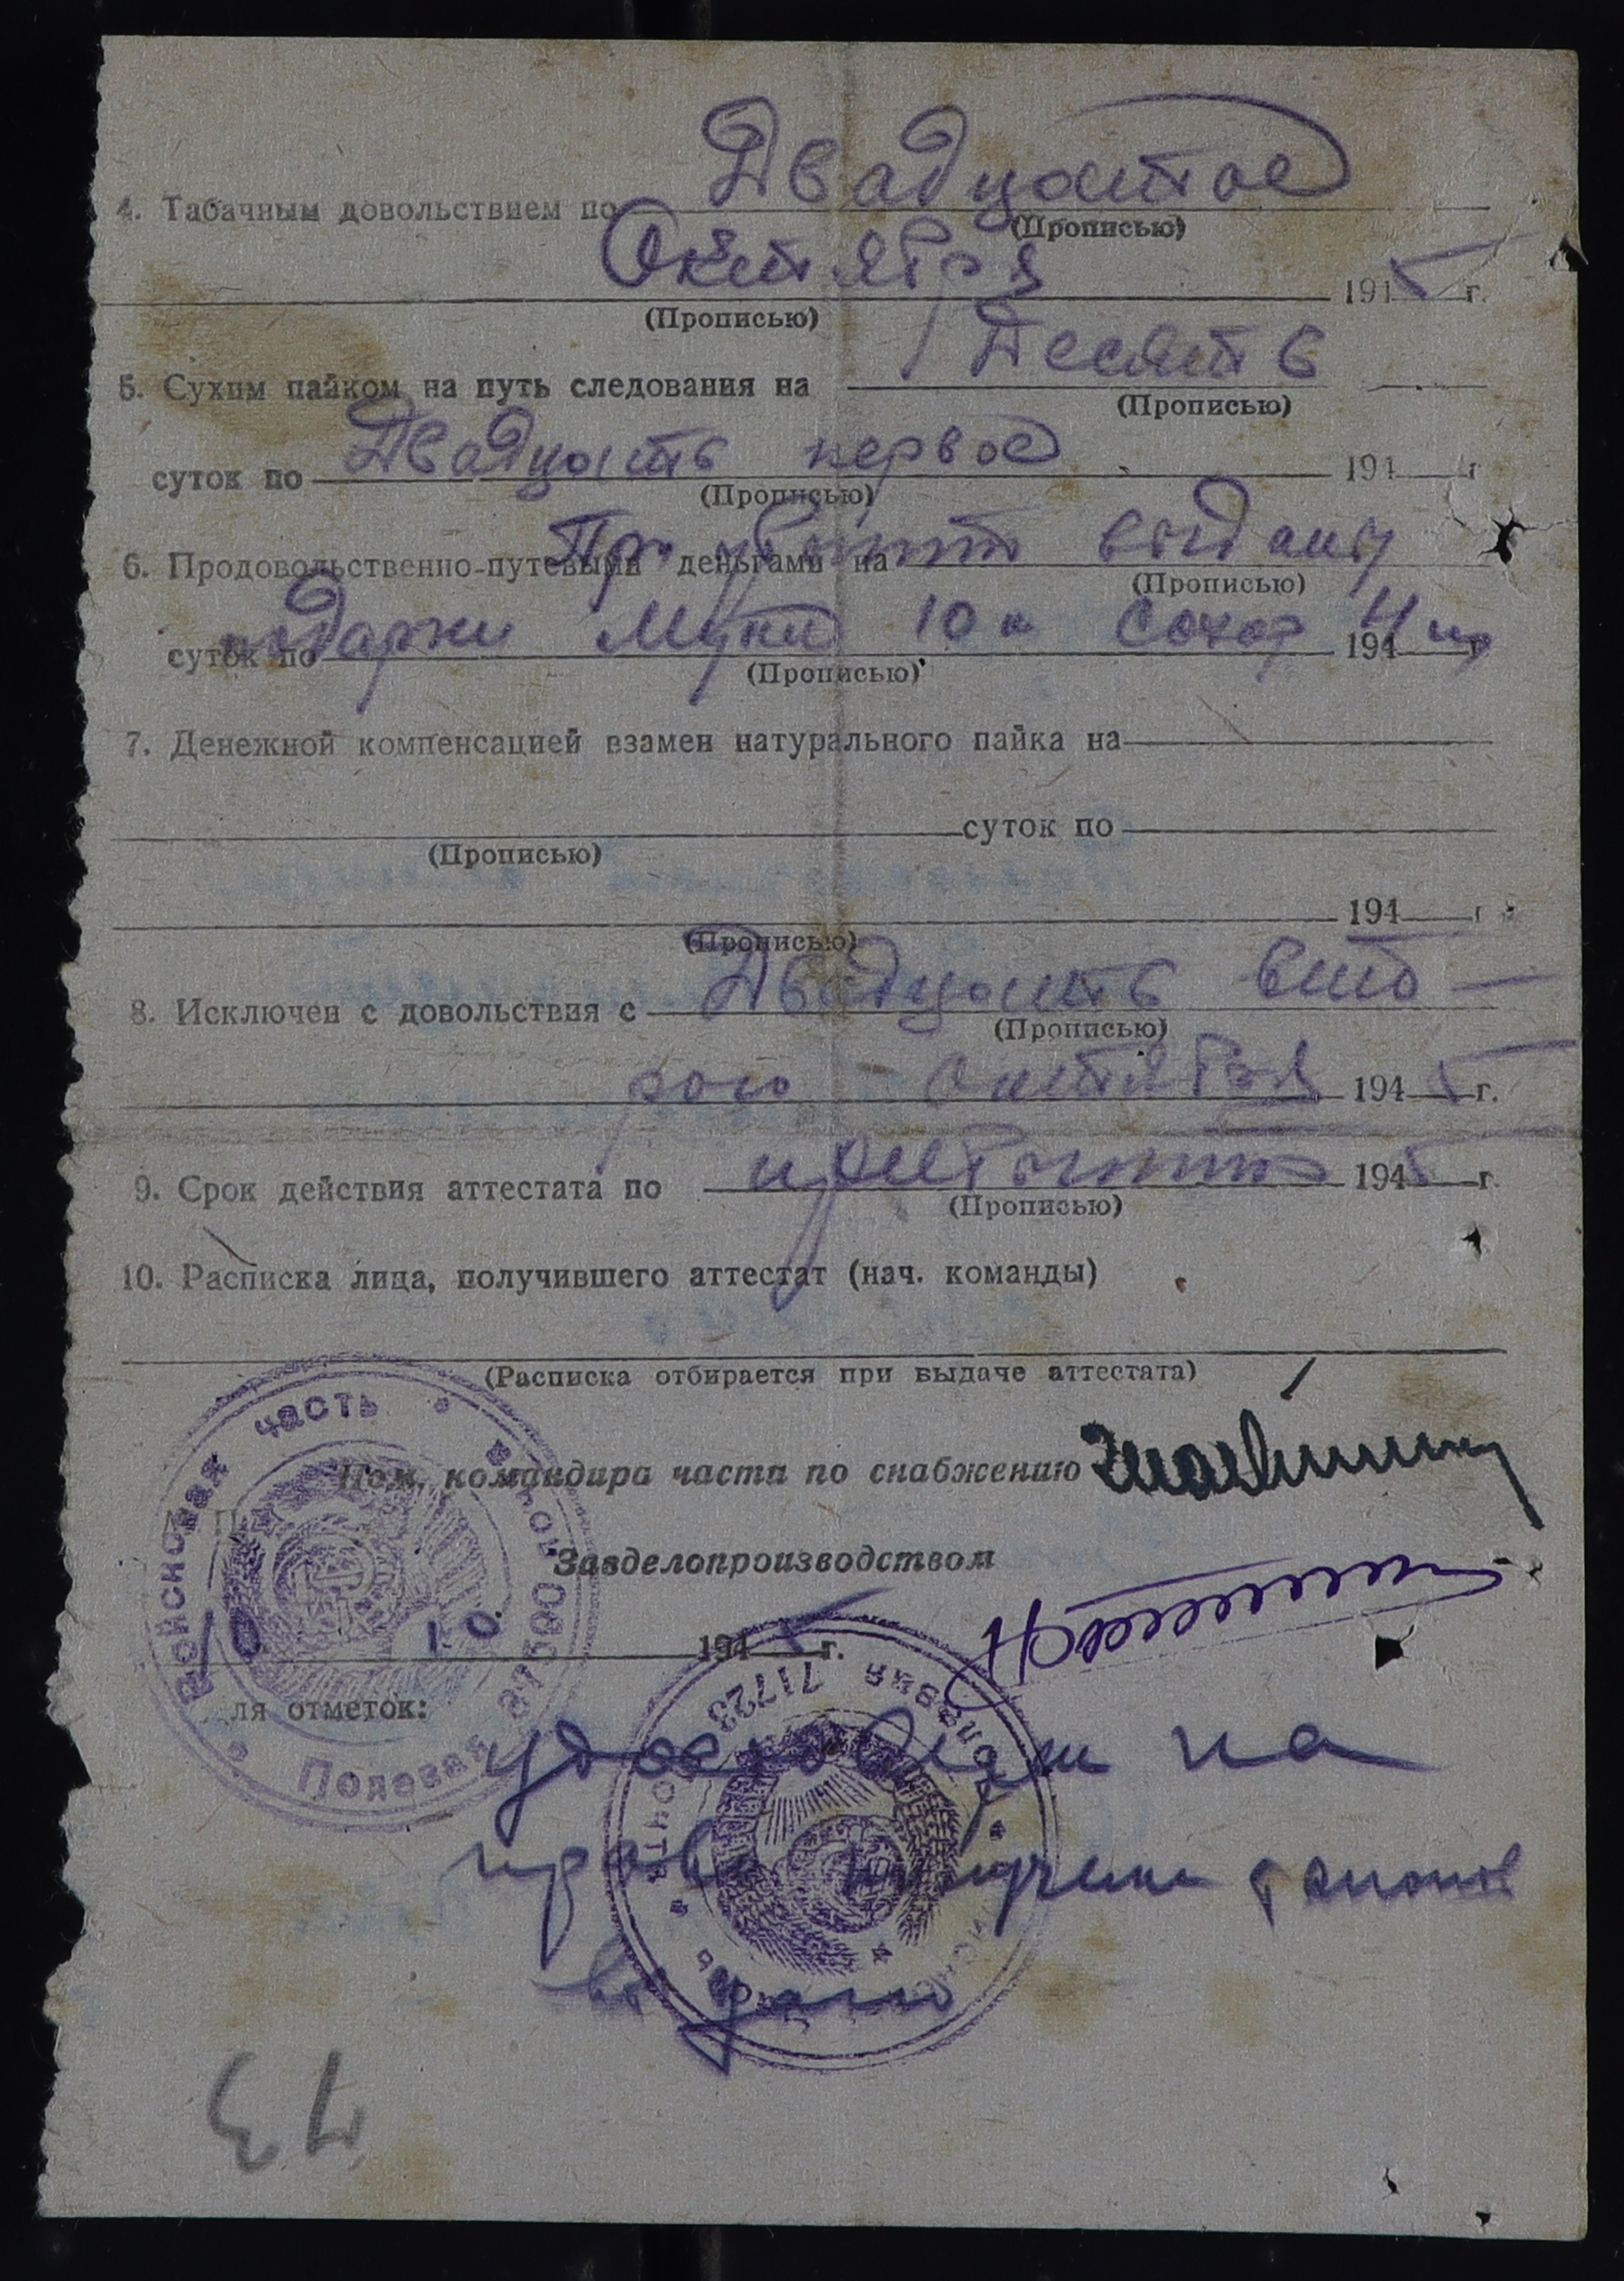 4. Табачным довольствием по Двадцатое
(Прописью)
Октября 1945 г.
(Прописью)
5. Сухим пайком на путь следования на Десять
(Прописью)
суток по Двадцать первое 194 г
(Прописью)
6. Продовольственно-путевыми деньгами на
(Прописью)
суток по 194 г
подарки Муки 10 к Сахар 4 кг
(Прописью)
7. Денежной компенсацией взамен натурального пайка на
суток по
(Прописью)
194 г
(Прописью)
8. Исключен с довольствия с Двадцать вто-
(Прописью)
рого октября 1945 г.
9. Срок действия аттестата по 1945 г.
(Прописью)
10. Расписка лица, получившего аттестат (нач. команды)
(Расписка отбирается при выдаче аттестата)
Пом. командира части по снабжению
М. П.
Завделопроизводством
10 10 1945 г.
ля отметок:
Войсковая часть
Полевая
71723
на
право